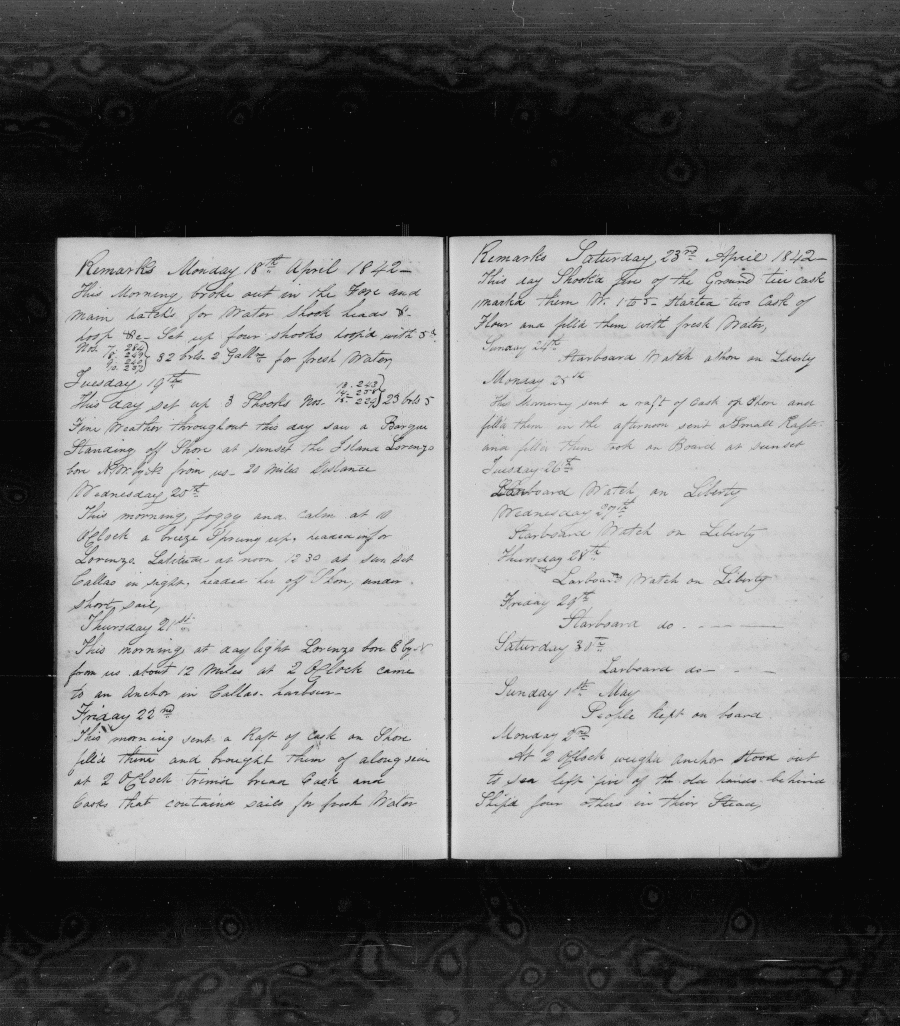 Remarks Monday 18th April 1842
This Morning broke out in the Fore and
main hatch for Water Shook heads &
hoop &c Set up four shooks hoop'd with
Nos. 32 brls. 2 Galls for fresh Water,
Tuesday 19th
This day set up 3 Shooks Nos. 23 brls 5
Fine Weather throughout this day saw a Barque
Standing off Shore at sunset the Island Lorenzo
bore from us 20 Miles Distance
Wednesday 20th
This morning foggy and Calm at 10
O'Clock a breeze Sprung up, headed in for
Lorenzo. Latitude at noon 12 30 at sun set
Callao in sight, headed her off Shore, under
short sail,
Thursday 21st
This morning at day light Lorenzo bore E by N
from us about 12 Miles at 2 O'Clock came
to an Anchor in Callao harbour
Friday 22nd
This morning sent a Raft of Cask on Shore
fill'd them and brought them of along side
at 2 O'Clock trim'd bread Cask and
Casks that contained sails for fresh Water
Remarks Saturday 23rd April 1842
This day Shook'd five of the Ground tier Cask
marked them No. 1 to 5 Started two Cask of
Flour and fill'd them with fresh Water,
Sunday 24th
Starboard Watch a Shore on Liberty
Monday 25th
This Morning sent a raft of Cask of Shore and
fill'd them in the afternoon sent a Small Raft
and fill'd them took on Board at sunset
Tuesday 26th
Larboard Watch on Liberty
Wednesday 27th
Starboard Watch on Liberty
Thursday 28th
Larboard Watch on Liberty
Friday 29th
Starboard do
Saturday 30th
Larboard do
Sunday 1st May
People kept on board
Monday 2nd
At 2 O'Clock weighd anchor stood out
to sea left five of the old hands behind
Ship'd four others in their Stead,